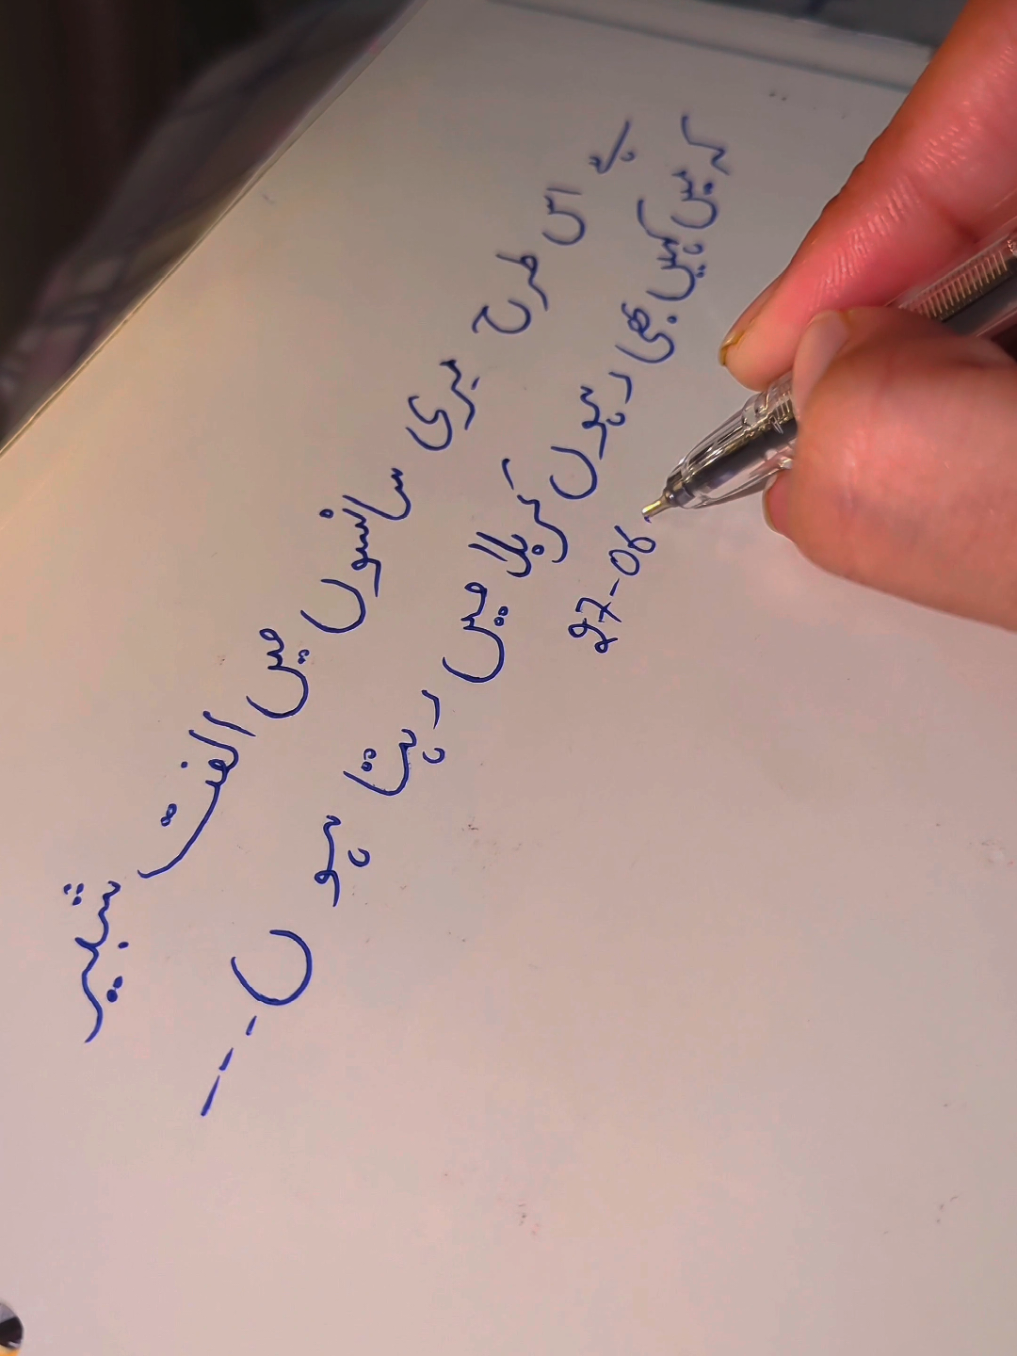 ہے اس طرح میری سانسوں میں الفت شبیر
کہ میں کہیں بھی رہوں کربلا میں رہتا ہوں---
27-06